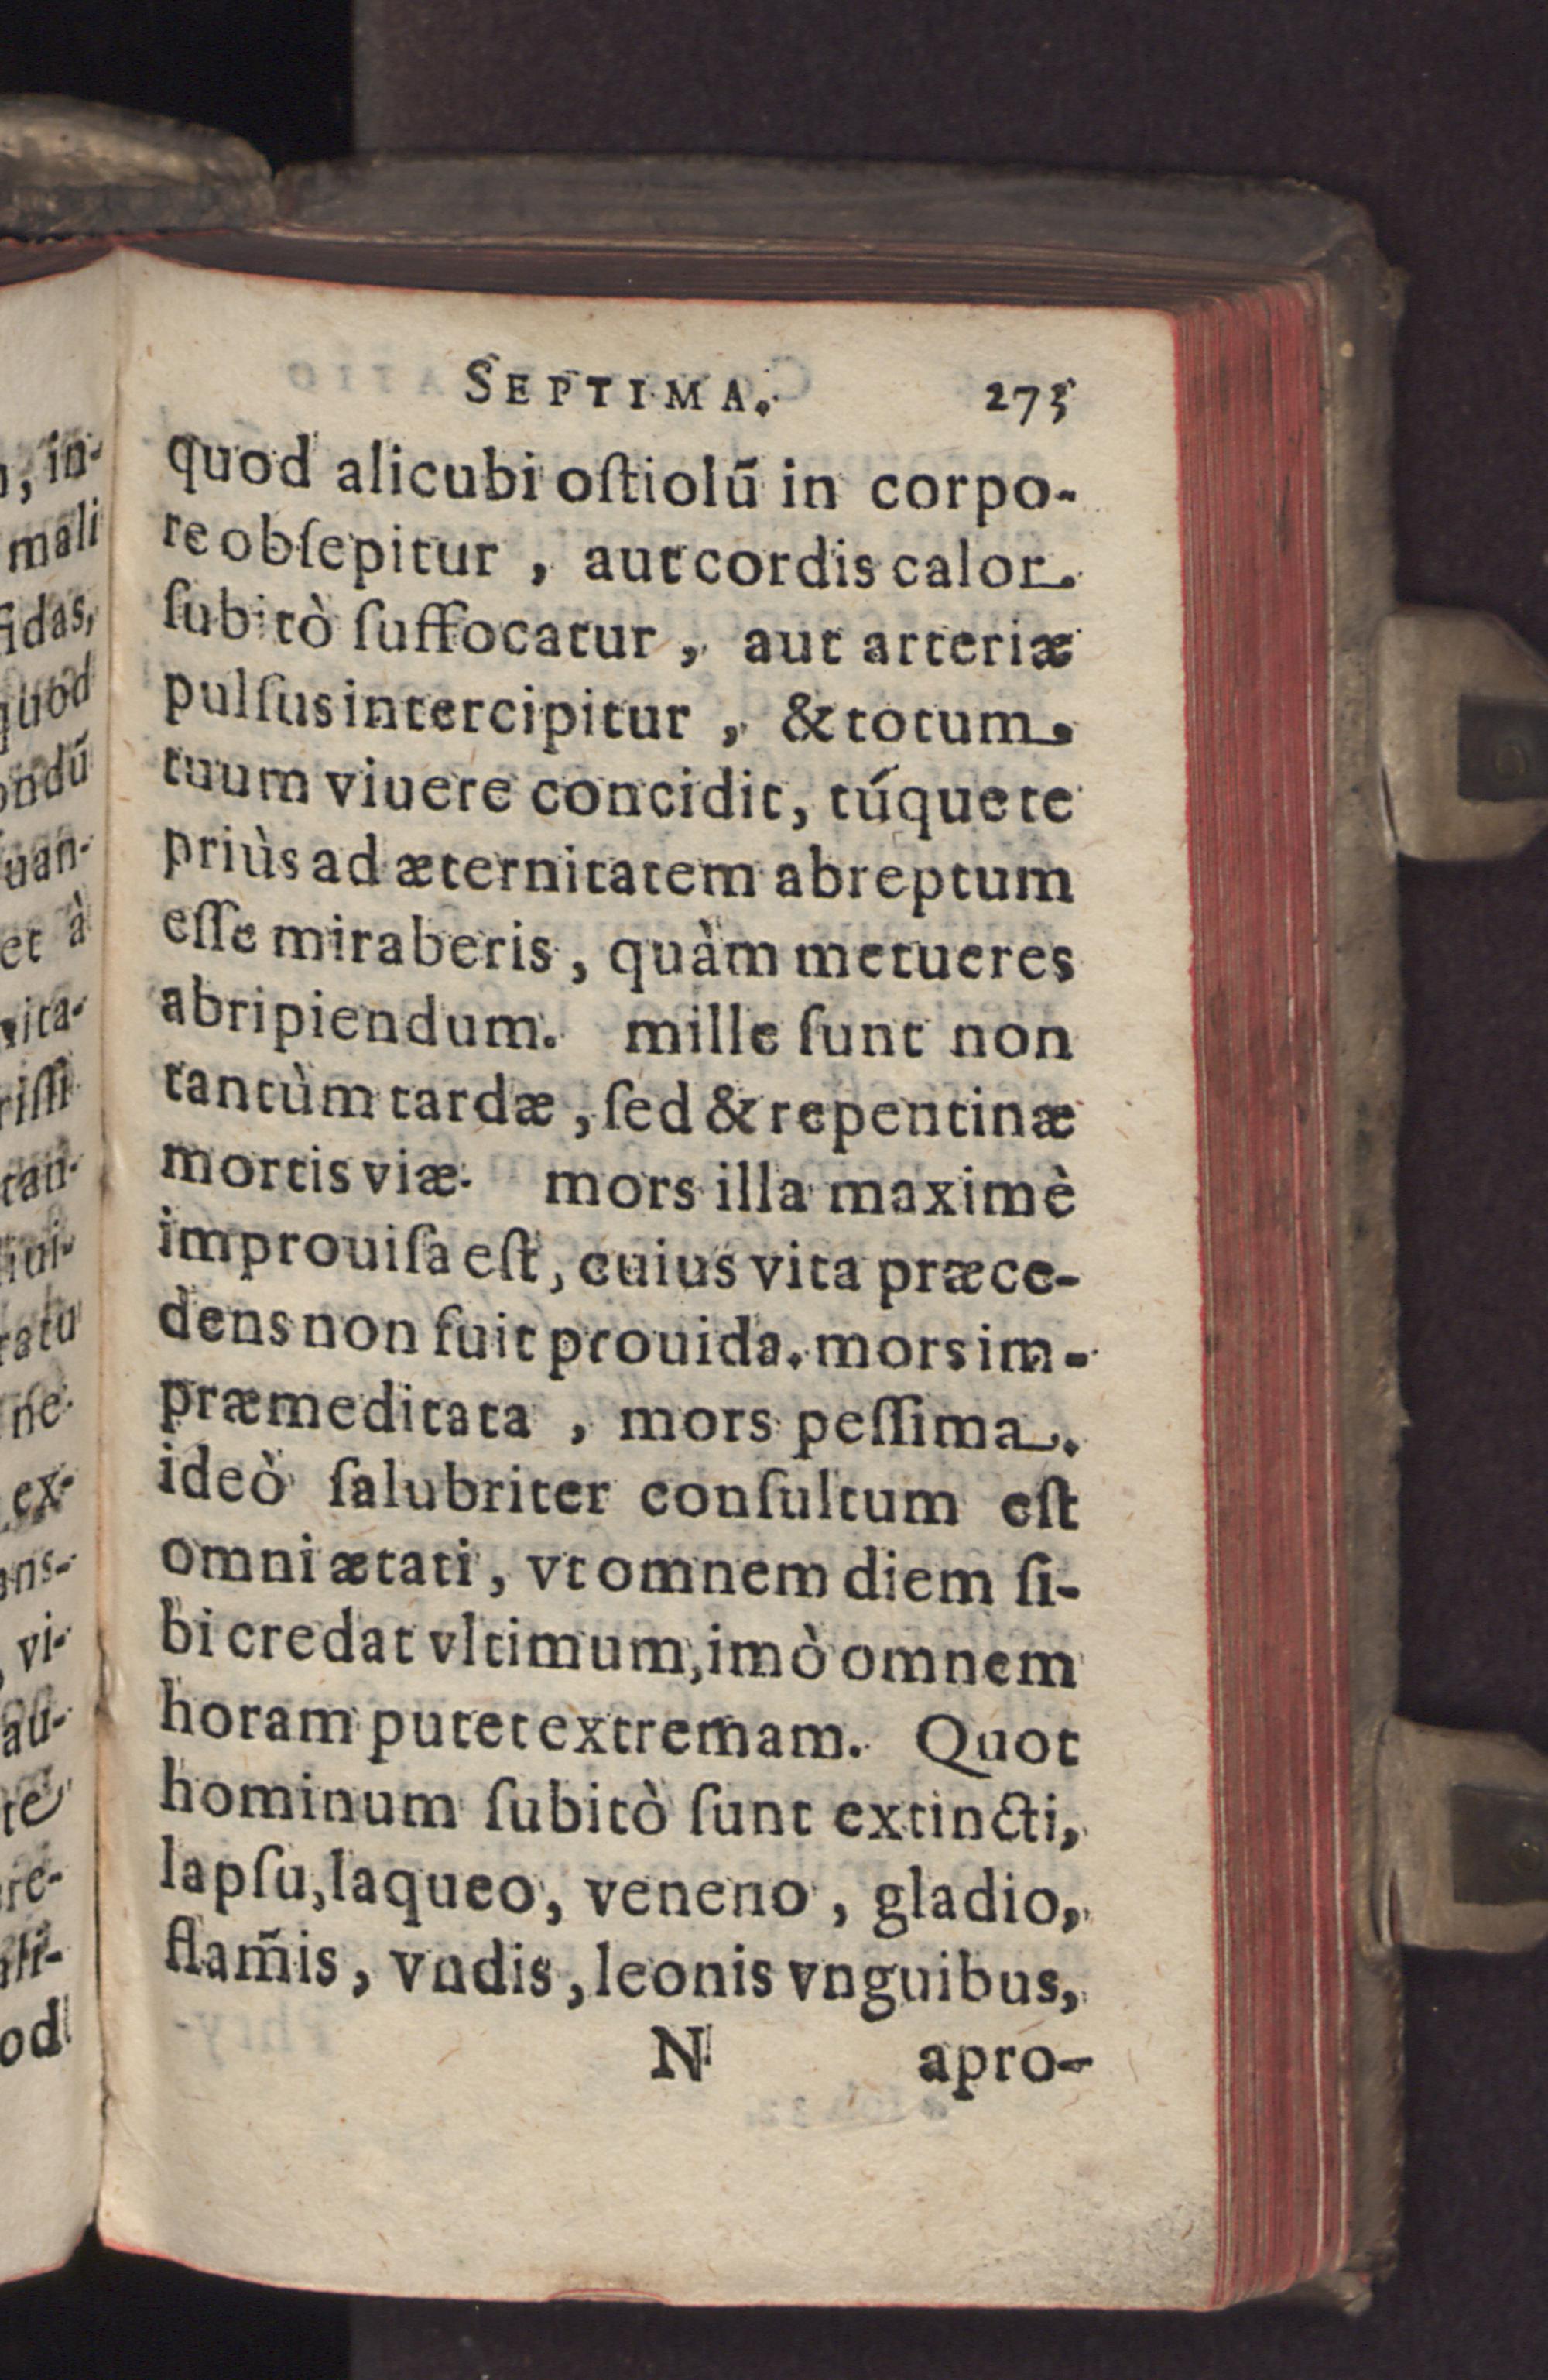 SEPTIMA. 273
quod alicubi oſtiolū in corpo-
re obſepitur, aut cordis calor
ſubitò ſuffocatur, aut arteriæ
pulſus intercipitur, & totum
tuum viuere concidit, túque te
priùs ad æternitatem abreptum
eſſe miraberis, quàm metueres
abripiendum. mille ſunt non
tantùm tardæ, ſed & repentinæ
mortis viæ. mors illa maximè
improuiſa eſt, cuius vita præce-
dens non fuit prouida. mors im-
præmeditata, mors peſſima.
ideò ſalubriter conſultum eſt
omni ætati, vt omnem diem ſi-
bi credat vltimum, imò omnem
horam putet extremam. Quot
hominum ſubitò ſunt extincti,
lapſu, laqueo, veneno, gladio,
flam̄is, vndis, leonis vnguibus,
N apro-